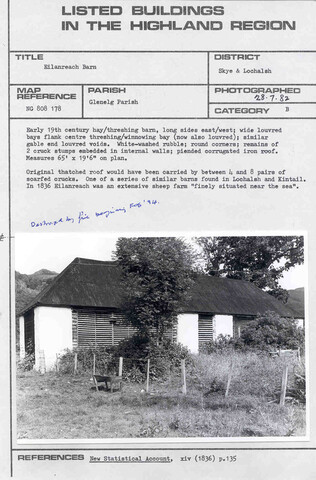 LISTED BUILDINGS
IN THE HIGHLAND REGION
TITLE
Eilanreach Barn
DISTRICT
Skye & Lochalsh
MAP
REFERENCE
NG 808 178
PARISH
Glenelg Parish
PHOTOGRAPHED
28.7.82
CATEGORY B
Early 19th century hay/threshing barn, long sides east/west; wide louvred
bays flank centre threshing/winnowing bay (now also louvred); similar
gable end louvred voids. White-washed rubble; round corners; remains of
2 cruck stumps embedded in internal walls; piended corrugated iron roof.
Measures 65' x 19'6" on plan.
Original thatched roof would have been carried by between 4 and 8 pairs of
scarfed crucks. One of a series of similar barns found in Lochalsh and Kintail.
In 1836 Eilanreach was an extensive sheep farm "finely situated near the sea".
Destroyed by fire beginning Feb '94.
REFERENCES New Statistical Account, xiv (1836) p.135